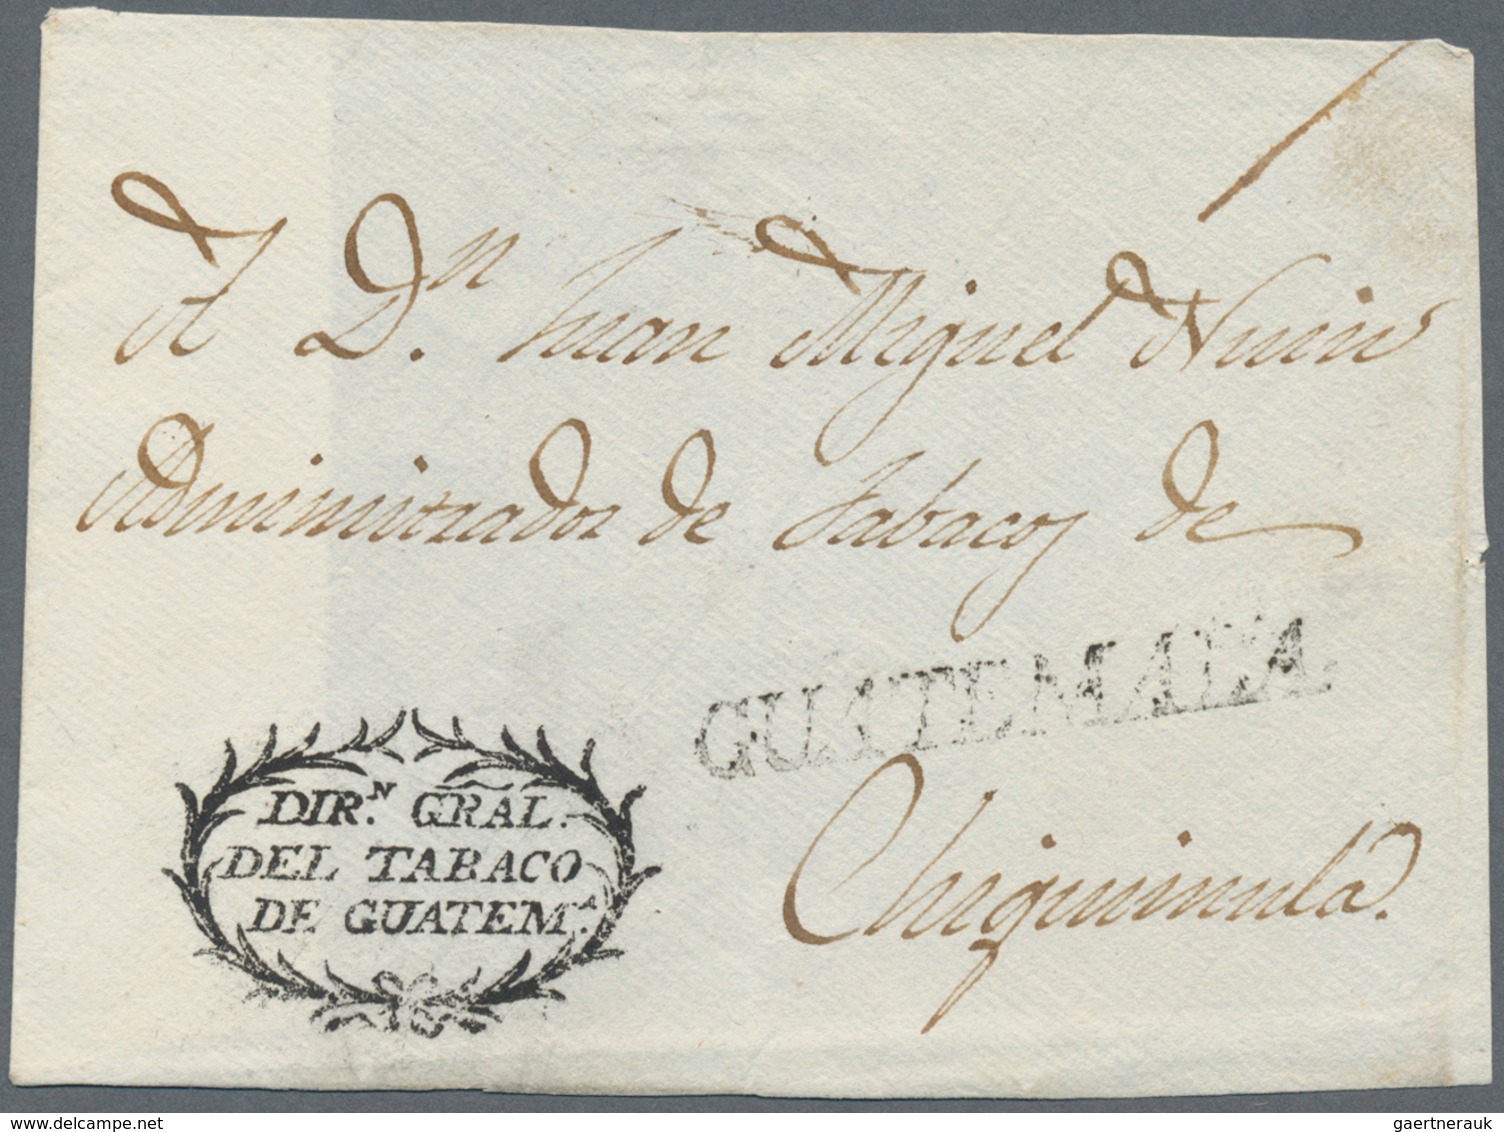 A D.n Juan Miguel
Administrador de Tabacos de
GUATEMALA.
Chiquimula.
DIR.N GRAL.
DEL TABACO
DE GUATEM.A
delcampe.net
gaertnerauk